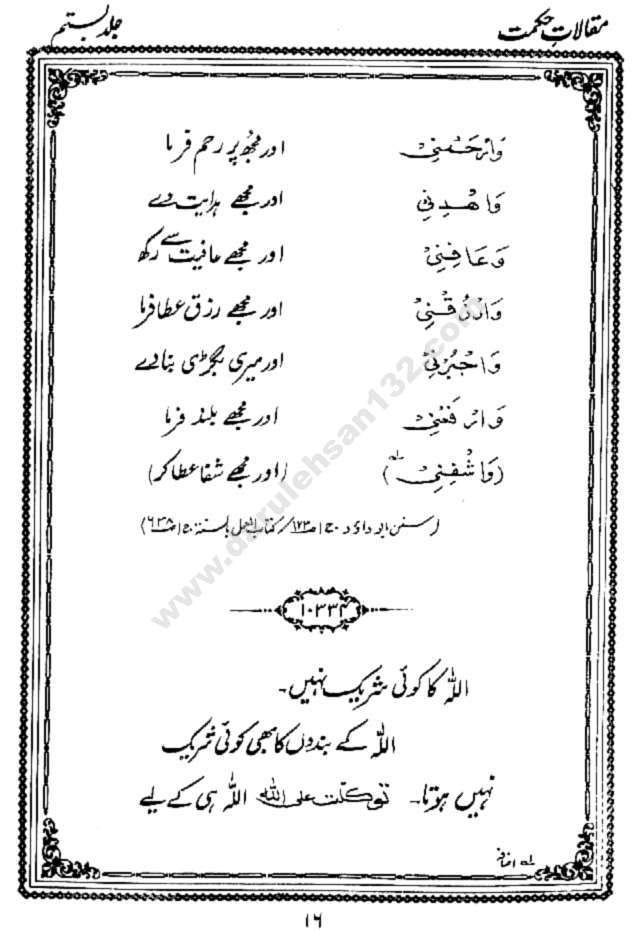 مقالاتِ حکمت جلد بستم
وَارْحَمْنِیْ اور مجھ پر رحم فرما
وَاهْدِنِیْ اور مجھے ہدایت دے
وَعَافِنِیْ اور مجھے عافیت سے رکھ
وَارْزُقْنِیْ اور مجھے رزق عطا فرما
وَاجْبُرْنِیْ اور میری بگڑی بنا دے
وَارْفَعْنِیْ اور مجھے بلند فرما
(وَاشْفِنِیْ) لہ (اور مجھے شفا عطا کر)
(سنن ابو داؤد ج ۱ ص ۱۲۳ / کتاب العمل بالسنۃ ج ۱ ص ۶۳۵)
۱۰۳۳۴
اللہ کا کوئی شریک نہیں۔
اللہ کے بندوں کا بھی کوئی شریک
نہیں ہوتا۔ توکلت علی اللہ اللہ ہی کے لیے
لہ اضافہ
۱۶
www.darulehsan132.com